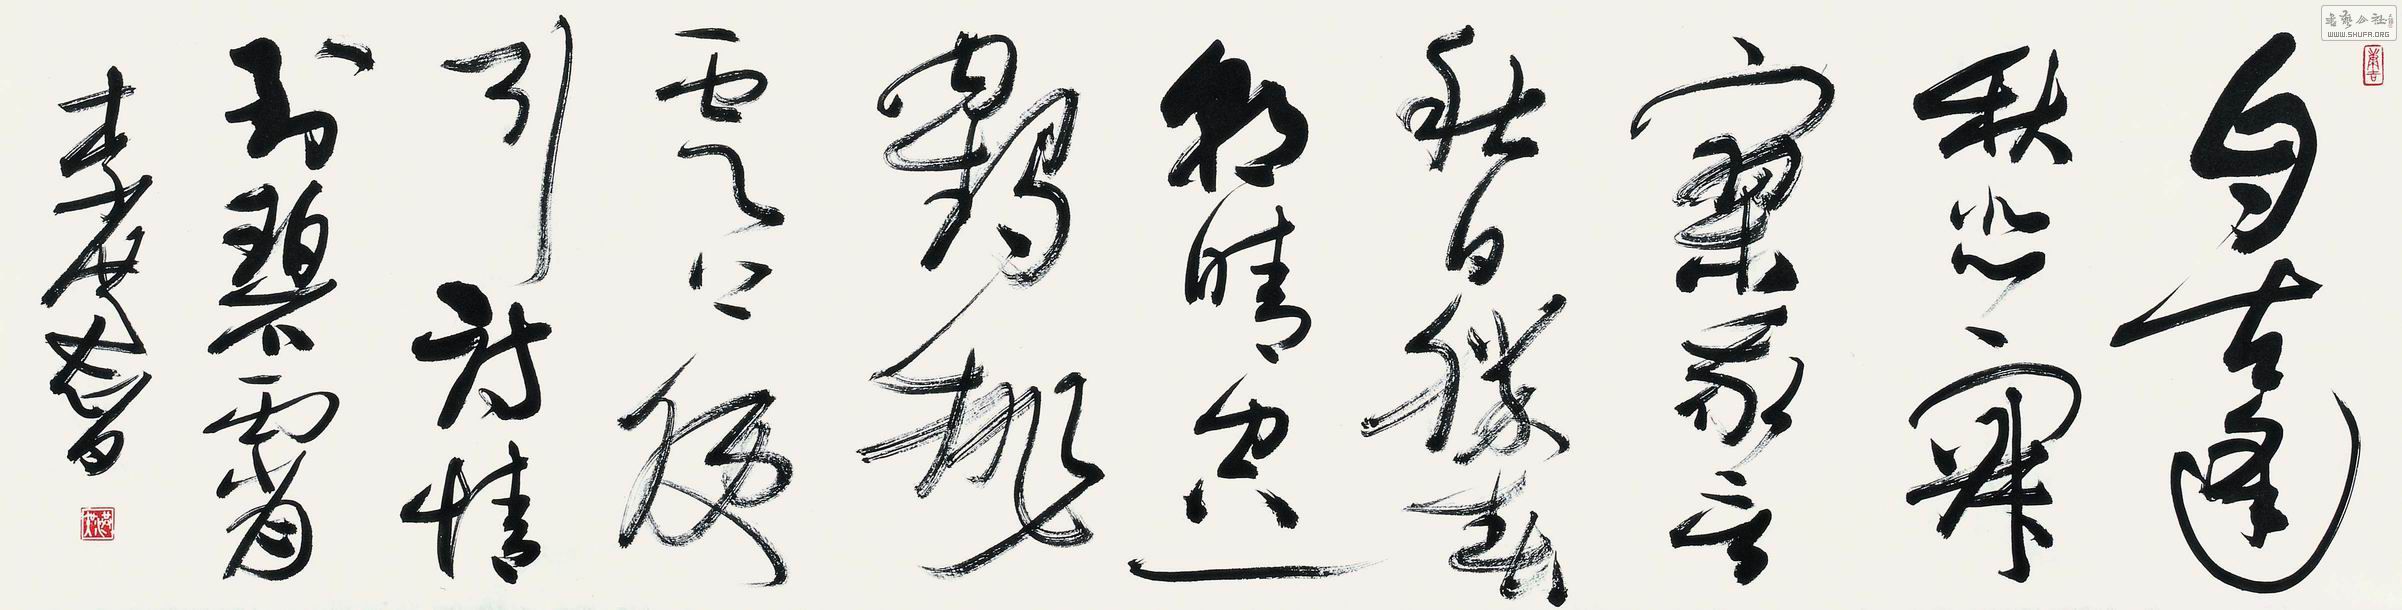 自古逢
秋悲寂
寥我言
秋日勝春
朝晴空一
鶴排
雲上便
引詩情
到碧霄
書藝公社
WWW.SHUFA.ORG